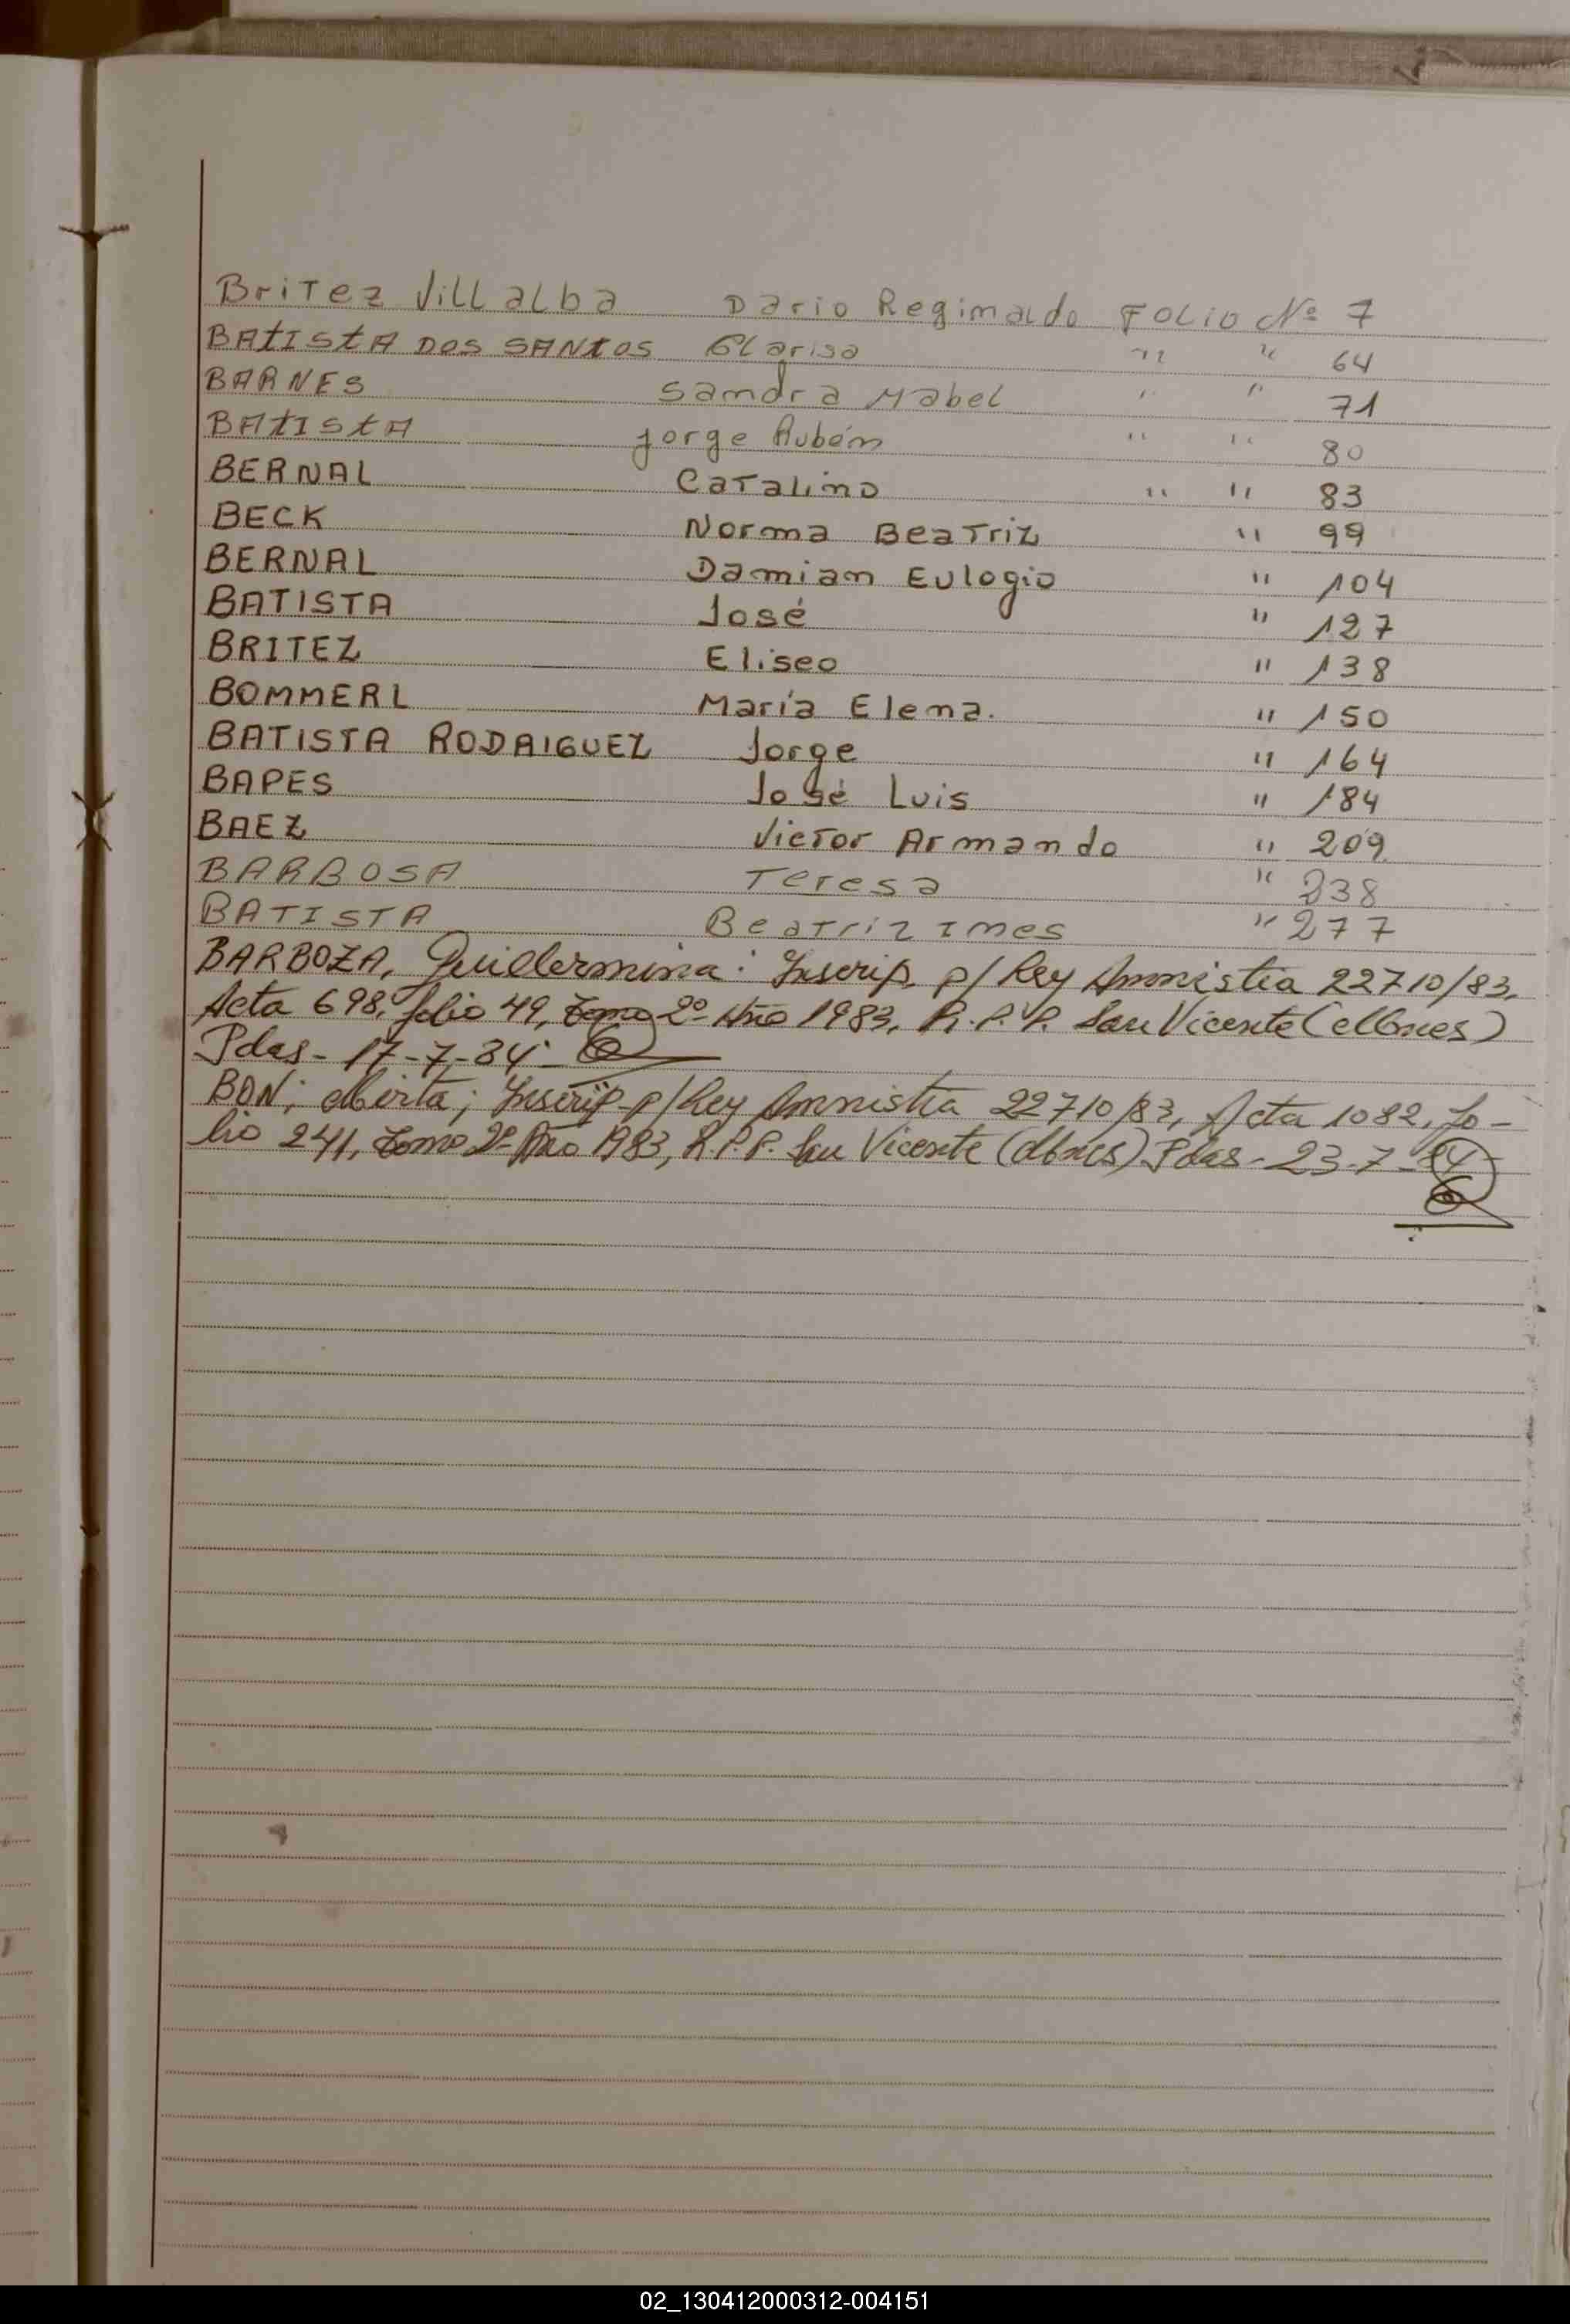 Britez Villalba Dario Reginaldo Folio Nº 7
BAtIStA DOS SANtOS Clarisa " " 64
BARNES Sandra Mabel " " 71
BAtIStA Jorge Rubén " " 80
BERNAL Catalino " " 83
BECK Norma Beatriz " 99
BERNAL Damian Eulogio " 104
BATISTA José " 127
BRITEZ Eliseo " 138
BOMMERL María Elena. " 150
BATISTA RODRIGUEZ Jorge " 164
BAPES José Luis " 184
BAEZ Victor Armando " 209
BARBOSA Teresa " 238
BATISTA Beatriz Ines " 277
BARBOZA, Guillermina: Inscrip. p/ Ley Amnistia 22710/83,
Acta 698, folio 49, tomo 2º Año 1983, R.P.P. San Vicente (Mnes)
Pdas - 17-7-84-
BON; Mirta; Inscrip. p/ Ley Amnistia 22710/83, Acta 1082, fo-
lio 241, tomo 2º Año 1983, R.P.P. San Vicente (Mnes) Pdas - 23-7-84
02_130412000312-004151